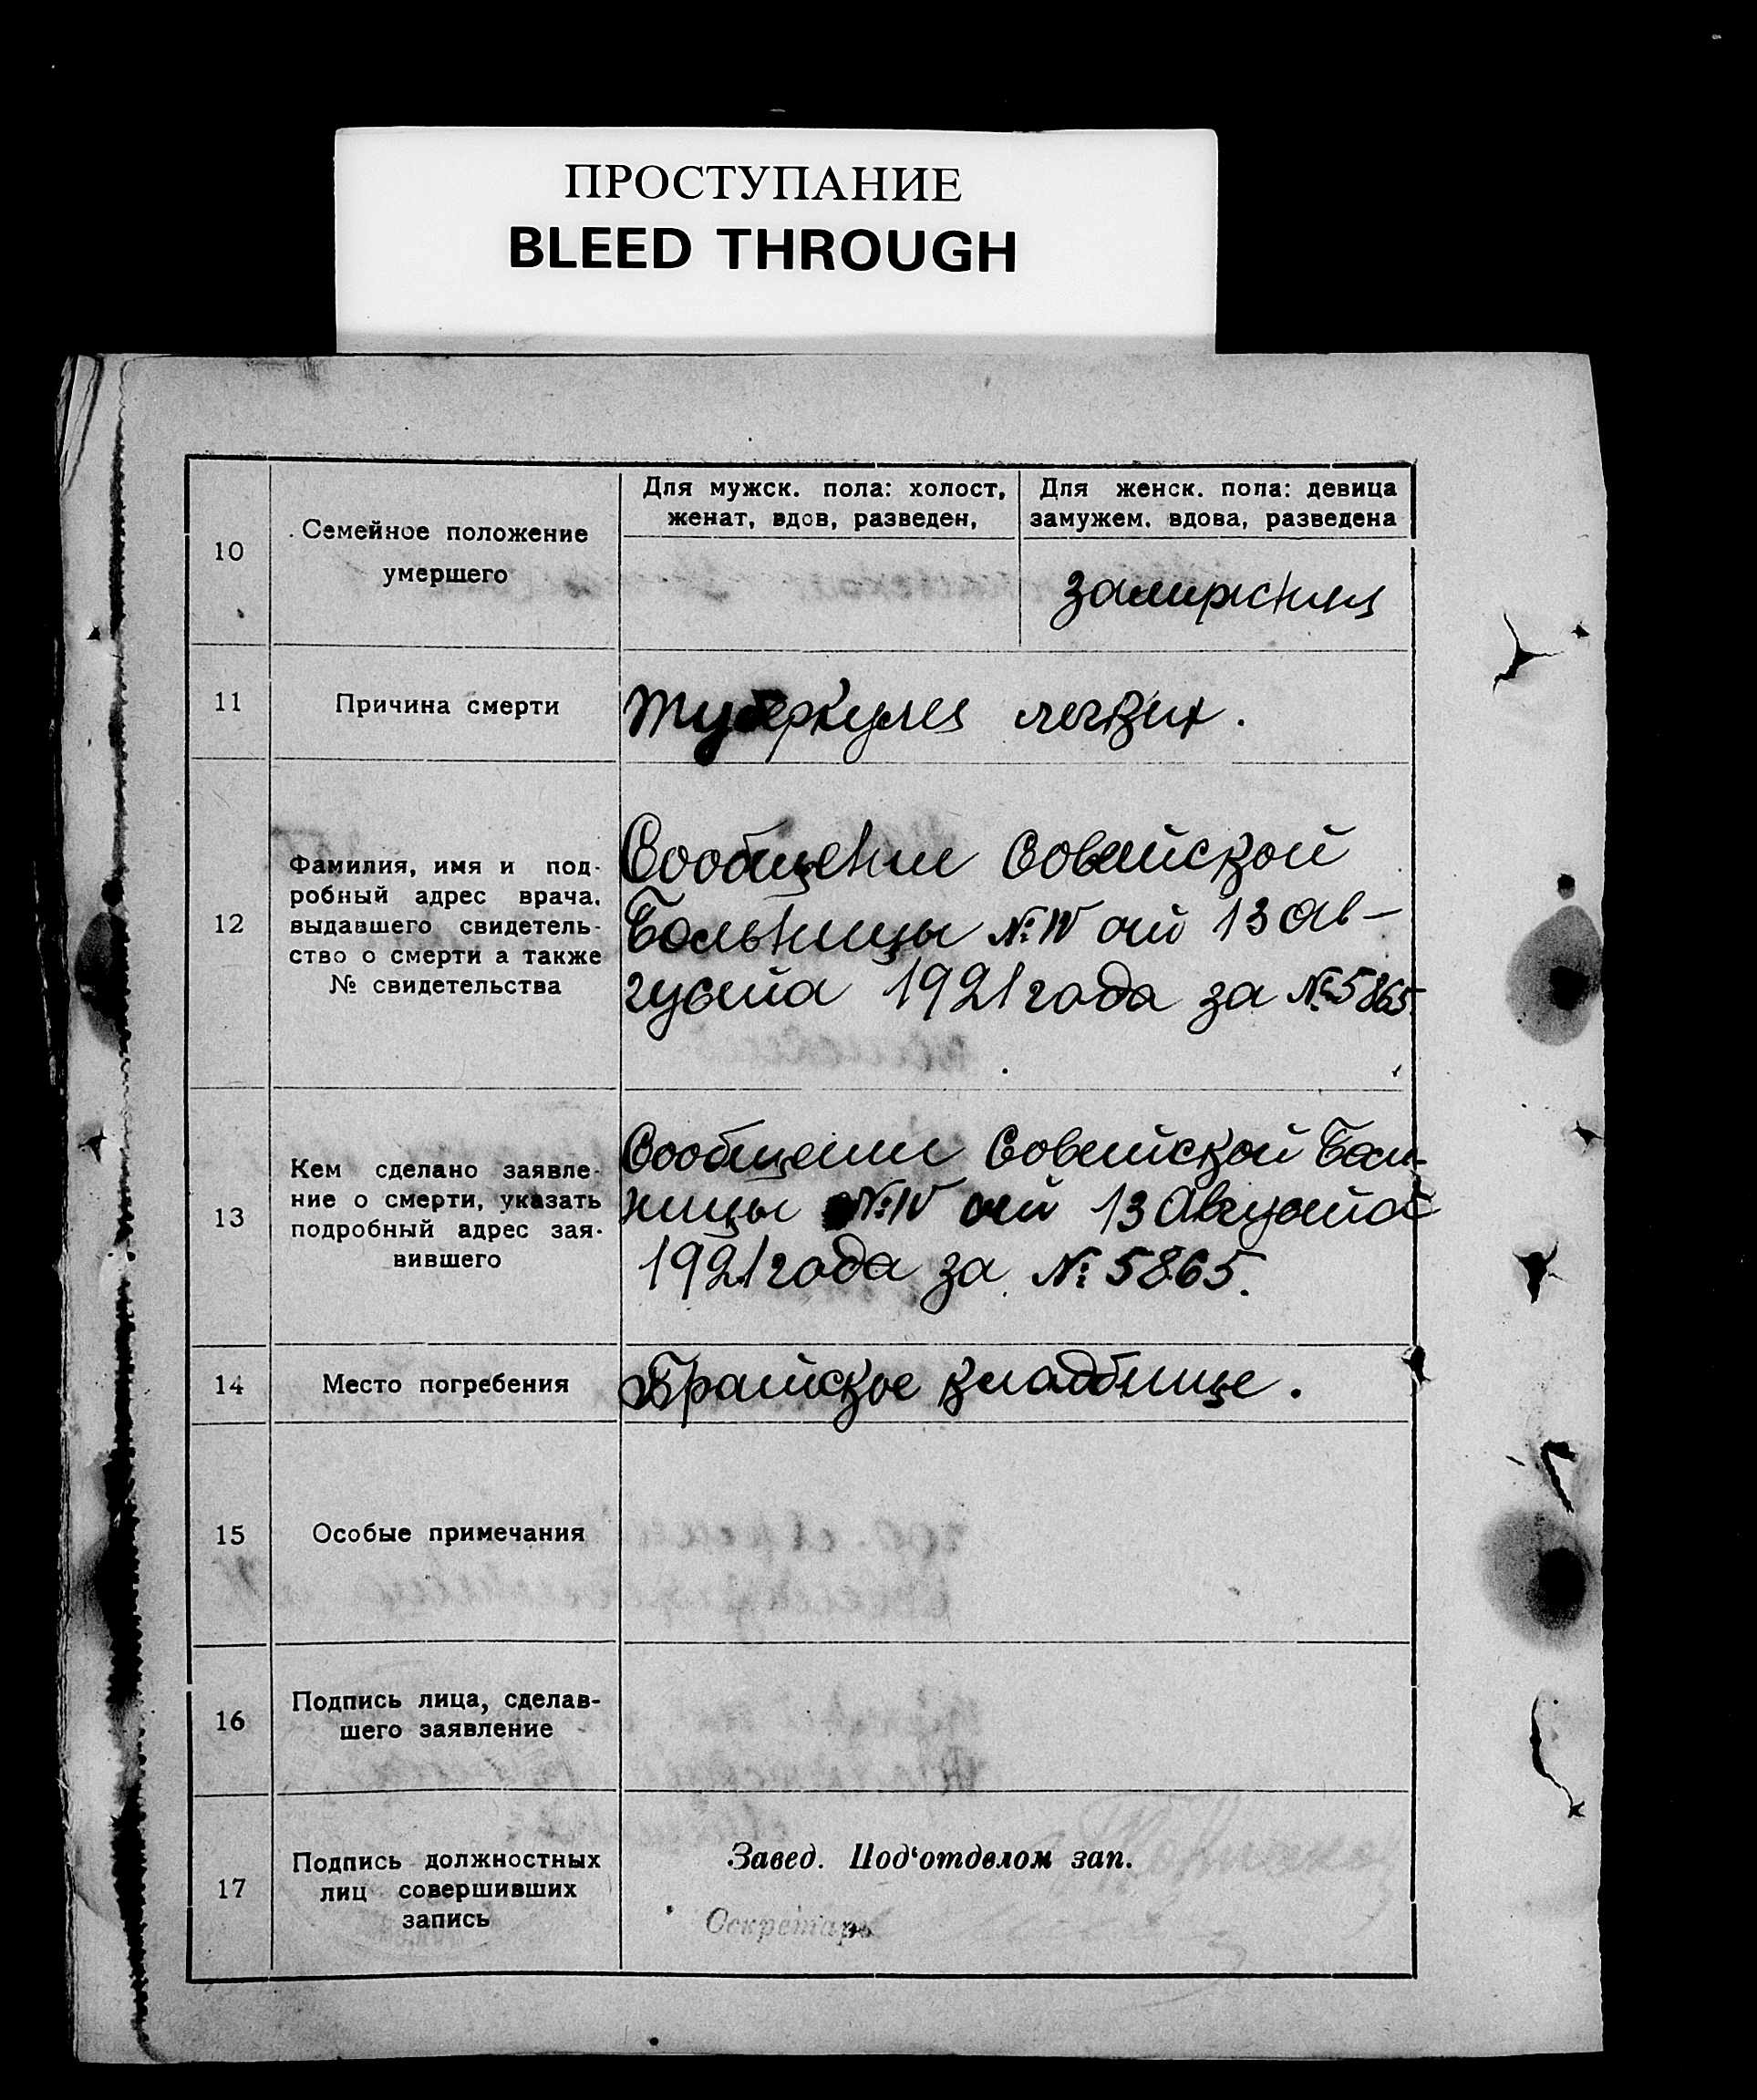 ПРОСТУПАНИЕ
BLEED THROUGH
10
Семейное положение
умершего
Для мужск. пола: холост,
женат, вдов, разведен,
Для женск. пола: девица
замужем. вдова, разведена
замужняя
11
Причина смерти
туберкулез легких.
12
Фамилия, имя и под-
робный адрес врача,
выдавшего свидетель-
ство о смерти а также
№ свидетельства
Сообщение Советской
Больницы №IV от 13 Ав-
густа 1921 года за №5865
13
Кем сделано заявле-
ние о смерти, указать
подробный адрес зая-
вившего
Сообщение Советской Боль-
ницы №IV от 13 Августа
1921 года за № 5865.
14
Место погребения
Братское кладбище.
15
Особые примечания
16
Подпись лица, сделав-
шего заявление
17
Подпись должностных
лиц совершивших
запись
Завед. Под‘отделом зап.
Секретарь